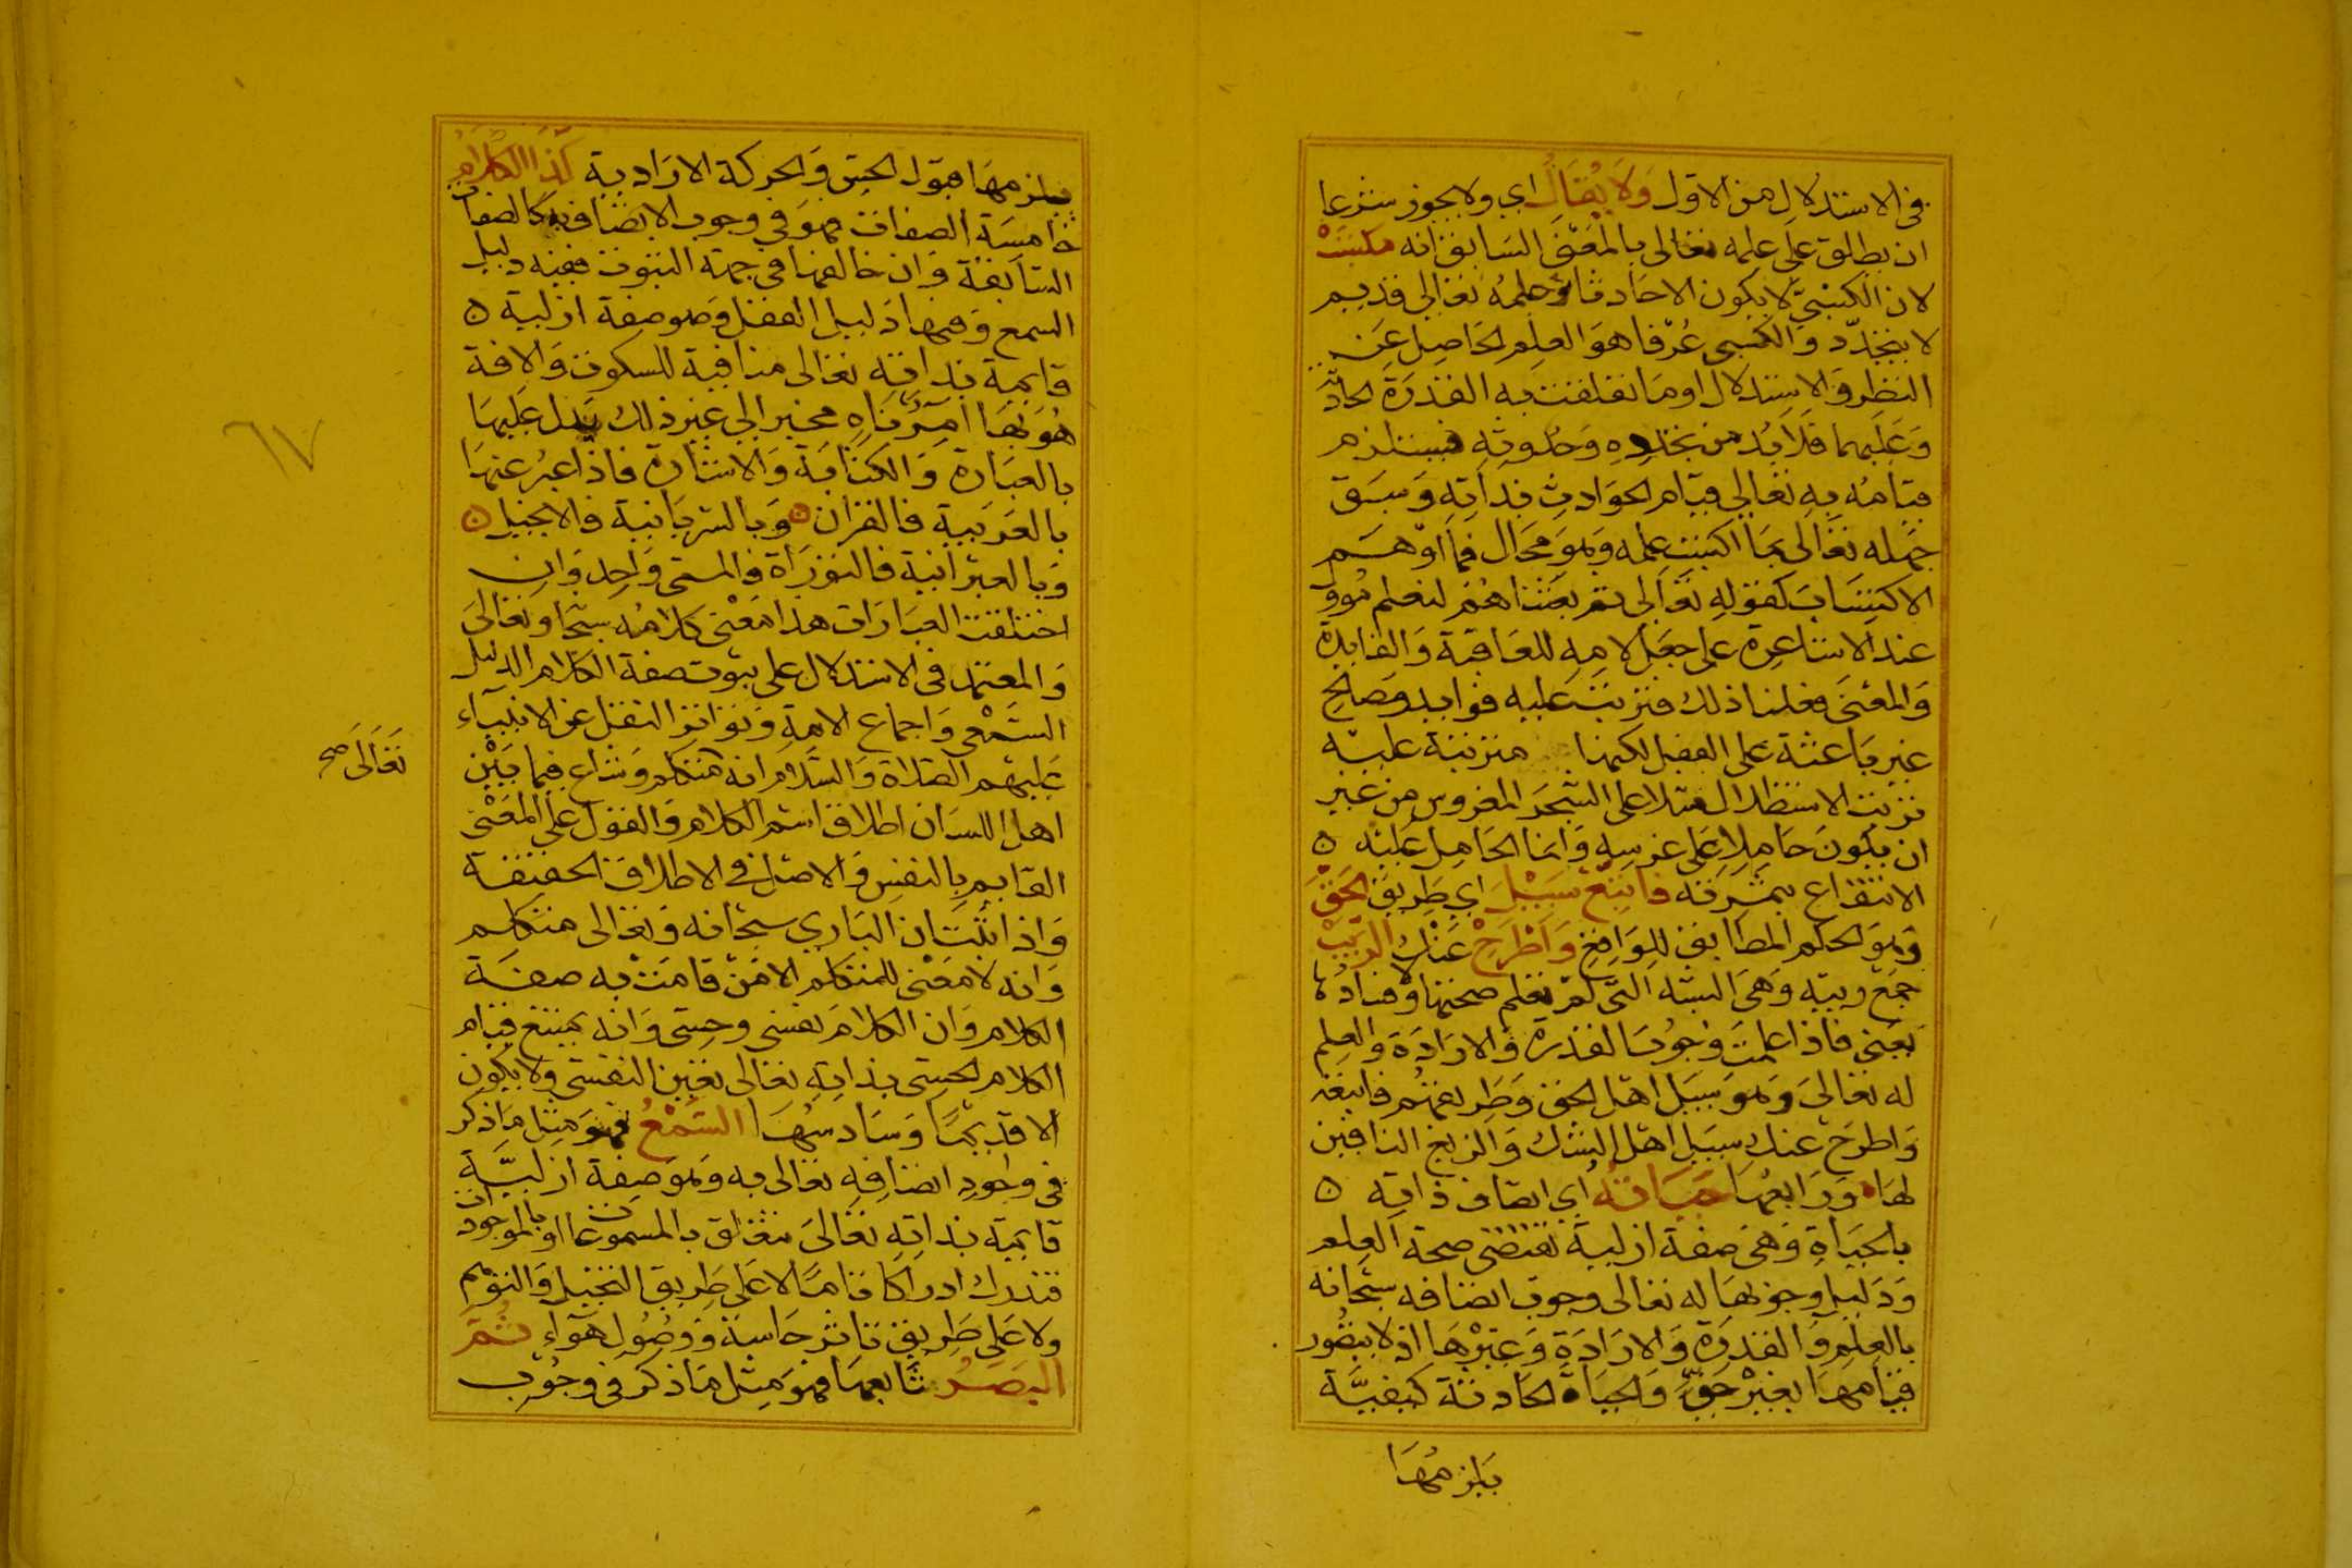 في الاستدلال من الاول وَلَا يُقَالُ اي ولا يجوز شرعا
ان يطلق على علمه تعالى بالمعنى السابق انه مكتسب
لان الكسبيّ لا يكون الا حادثا وعلمه تعالى قديم
لا يتجدّد والكسبي عُرفا هو العلم الحاصل عن
النظر والاستدلال او ما تعلقت به القدرة الحادثة
وعليهما فلا بُد من تجدده وحدوثه فيستلزم
قيامُه به تعالى قيام الحوادث بذاته وسبق
جهله تعالى بما اكتسب علمه وهو محال فما اوهم
الاكتساب كقوله تعالى ثم بعثناهم لنعلم مؤول
عند الاشاعرة على جعل لامه للعاقبة والفايدة
والمعنى فعلنا ذلك فترتبت عليه فوايد ومصالح
غير باعثة على الفعل لكنها مترتبة عليه
ترتب الاستظلال مثلا على الشجر المغروس من غير
ان يكون حاملا على غرسه وانما الحامل عليه
الانتفاع بثمرته فاتبع سبيل اي طريق الحق
وهو الحكم المطابق للواقع واطرح عنك الريب
جمع ريبة وهي الشبه التي لم تعلم صحتها وفسادها
يعني فاذا علمت وجوب القدرة والارادة والعلم
له تعالى وهو سبيل اهل الحق وطريقهم فاتبعه
واطرح عنك سبيل اهل الشك والزيغ النافين
لها ورابعها حياته اي اتصاف ذاته
بالحياة وهي صفة ازلية تقتضي صحة العلم
ودليل وجوبها له تعالى وجوب اتصافه سبحانه
بالعلم والقدرة والارادة وغيرها اذ لا يتصور
قيامها بغير حيّ والحياة الحادثة كيفيّة
يلزمها
يلزمها قبول الحس والحركة الارادية كذا الكلام
خامسة الصفات فهو في وجوب الاتصاف به كالصفات
السابقة وان خالفها في جهة الثبوت ففيه دليل
السمع وفيها دليل العقل وهو صفة ازلية
قايمة بذاته تعالى منافية للسكوت والافة
هو بها امر ناه مخبر الى غير ذلك يدل عليها
بالعبارة والكتابة والاشارة فاذا عبر عنها
بالعربية فالقران وبالسريانية فالانجيل
وبالعبرانية فالتوراة فالمسمى واحد وان
اختلفت العبارات هذا معنى كلامه سبحا وتعالى
والمعتمد في الاستدلال على ثبوت صفة الكلام الدليل
السمعي واجماع الامة وتواتر النقل عن الانبياء
عليهم الصلاة والسلام انه متكلم وشاع فيما بين
اهل اللسان اطلاق اسم الكلام والقول على المعنى
القايم بالنفس والاصل في الاطلاق الحقيقة
واذا ثبت ان الباري سبحانه وتعالى متكلم
وانه لا معنى للمتكلم الا من قامت به صفة
الكلام وان الكلام نفسي وحسي وانه يمتنع قيام
الكلام الحسي بذاته تعالى تعين النفسي ولا يكون
الا قديما وسادسها السمعُ فهو مثل ما ذكر
في وجود اتصافه تعالى به وهو صفة ازليّة
قايمة بذاته تعالى تتعلق بالمسموعات او بالموجودات
فتدرك ادراكا تاما لا على طريق التخيل والتوهم
ولا على طريق تاثر حاسة ووصول هواء ثم
البصر سابعها فهو مثل ما ذكر في وجوب
تعالى صح
٦٧